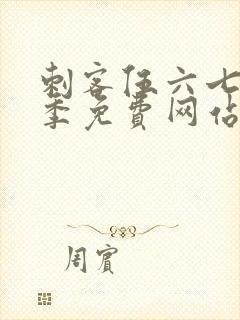 刺客伍六七
季免费网站
周宾